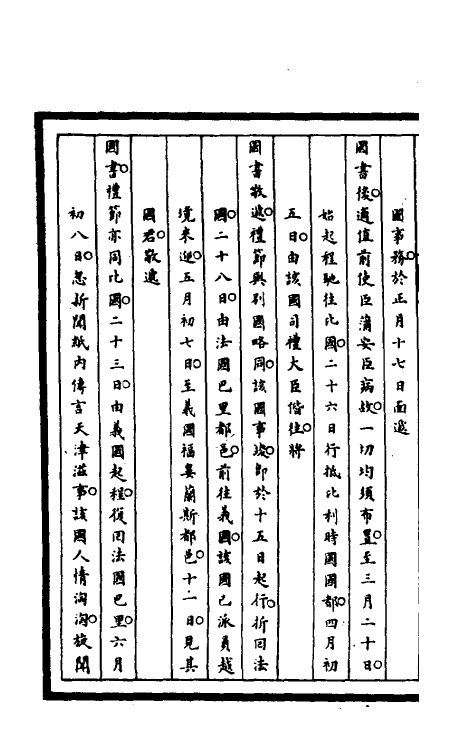 國事務。於正月十七日面遞
國書後。適值前使臣蒲安臣病故。一切均須布置。至三月二十日。
始起程馳往比國。二十六日行抵比利時國國都。四月初
五日。由該國司禮大臣偕往。將
國書敬遞。禮節與別國略同。該國事竣。即於十五日起行。折回法
國。二十八日。由法國巴里都邑。前往義國。該國已派員越
境來迎。五月初七日。至義國福婁蘭斯都邑。十一日。見其
國君。敬遞
國書。禮節亦同比國。二十三日。由義國起程。復回法國巴里。六月
初八日。忽新聞紙內傳言天津滋事。該國人情洶洶。旋聞